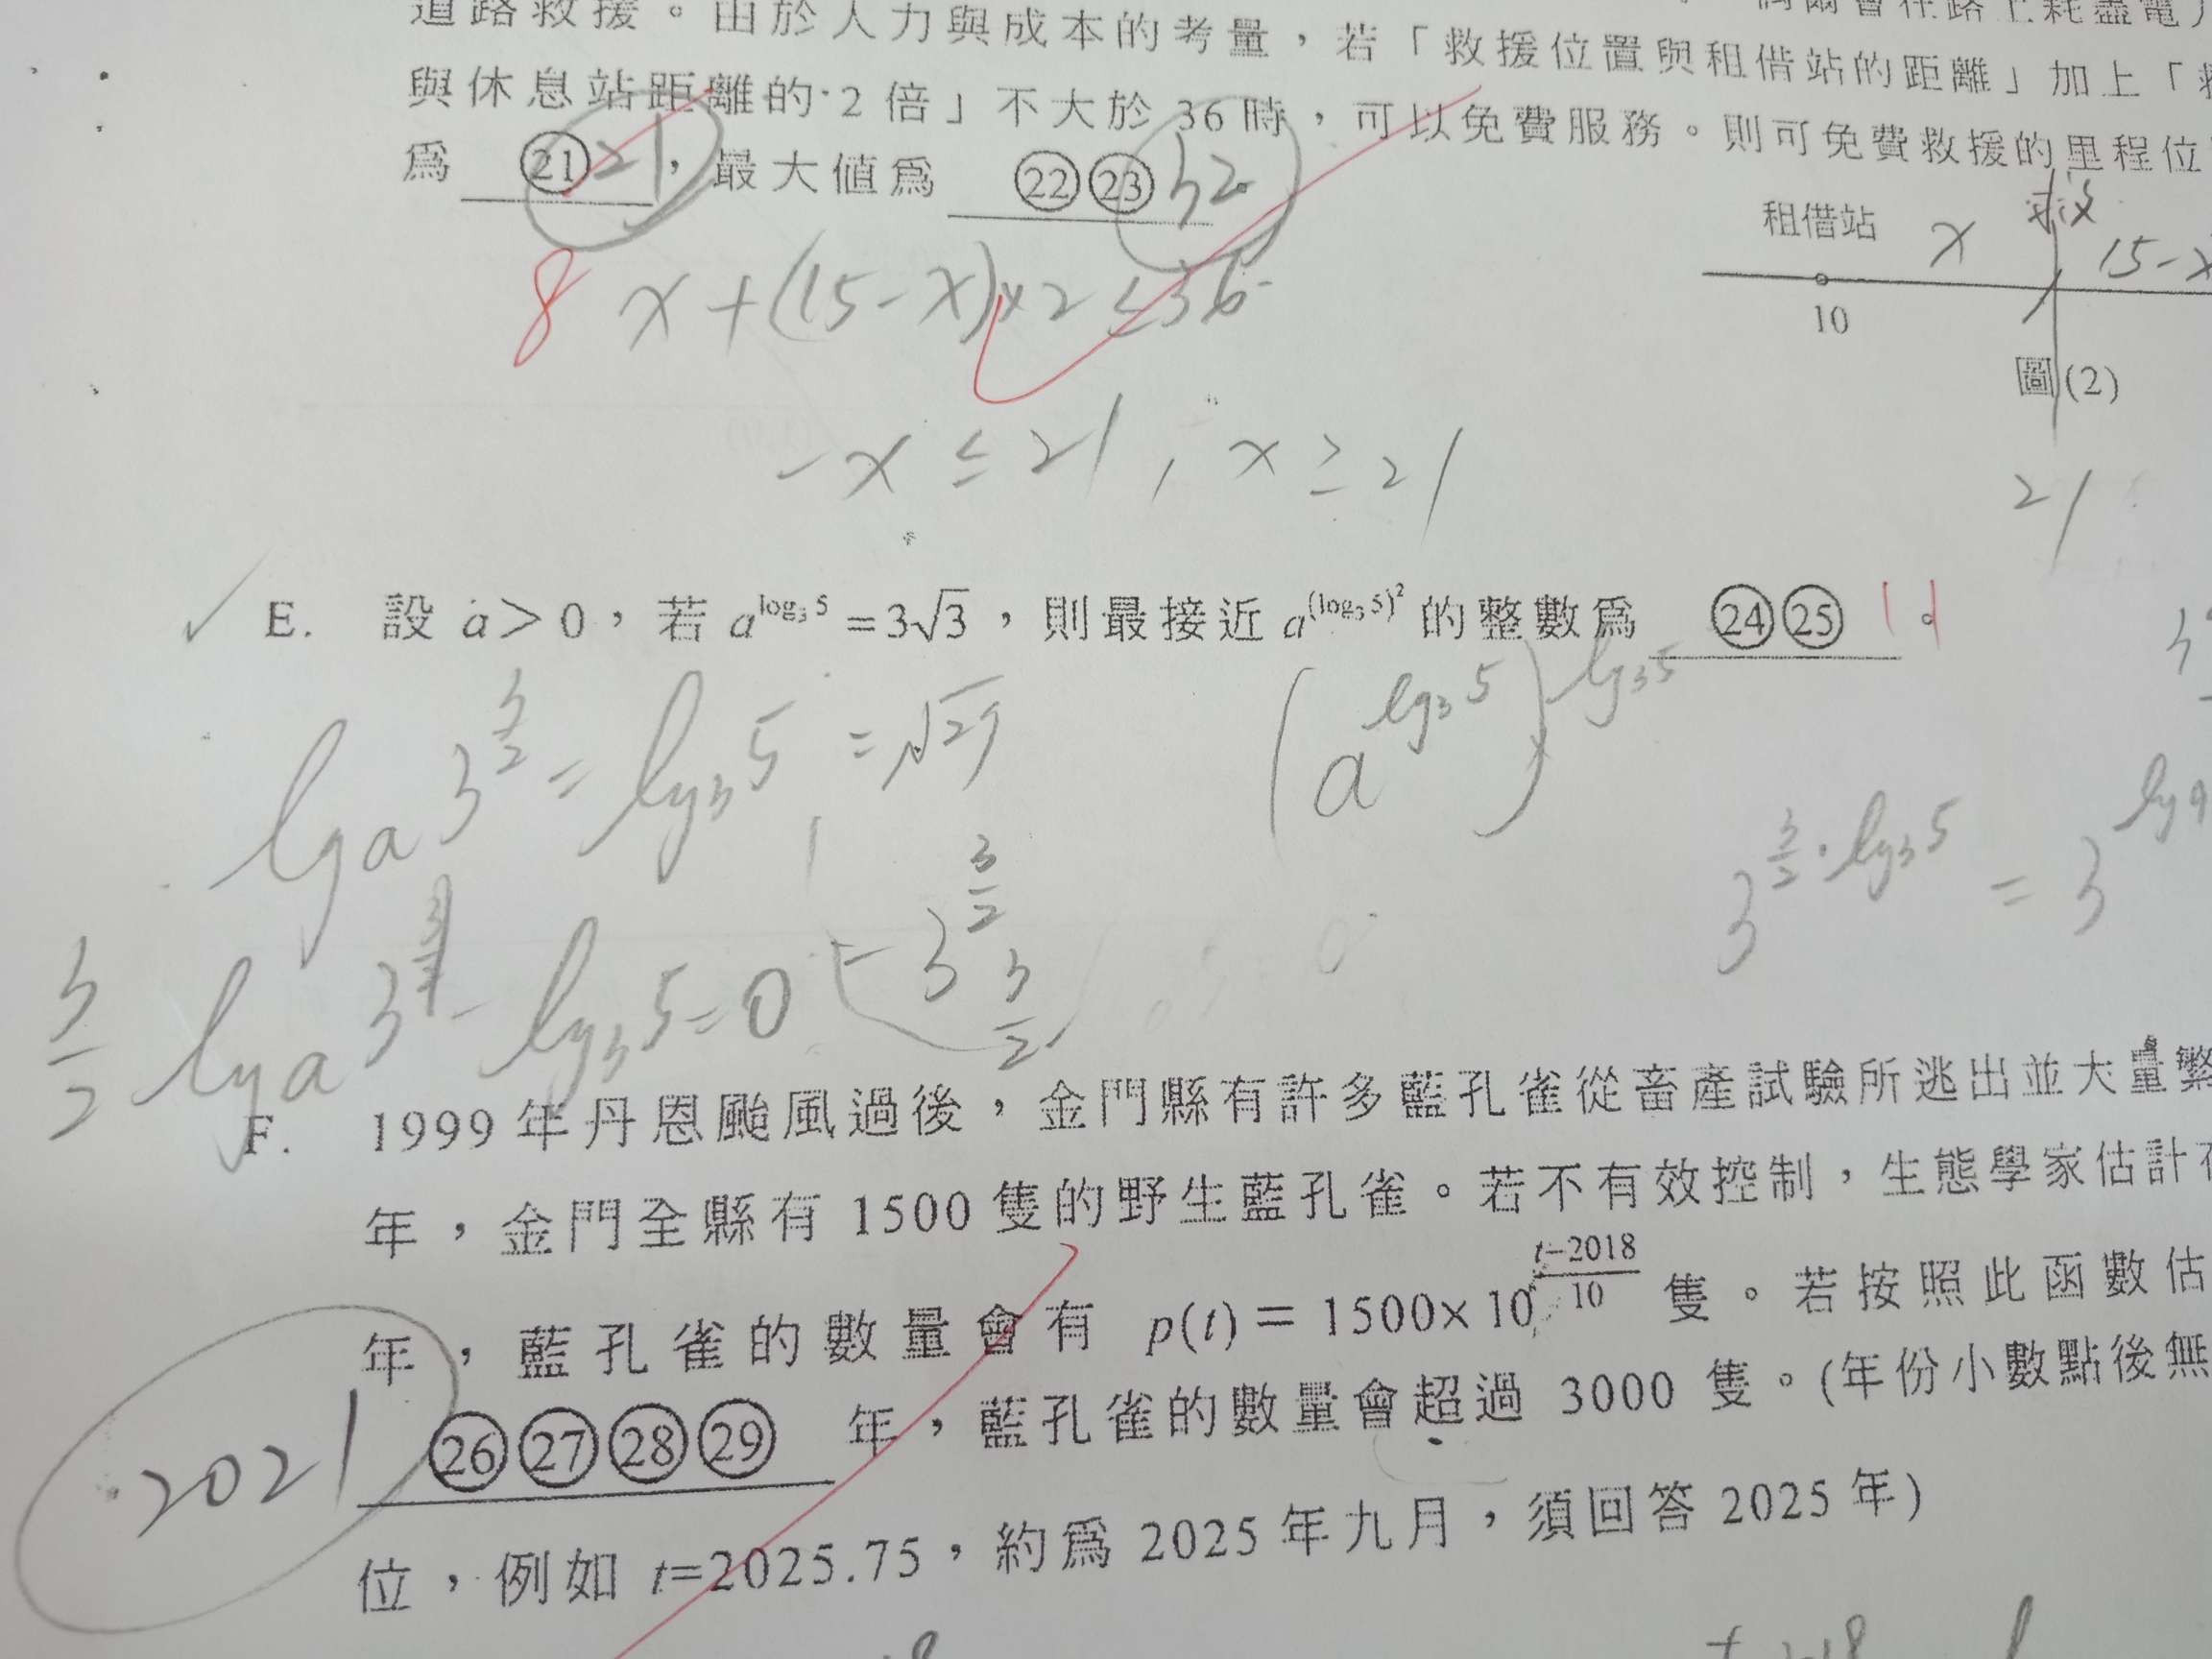 道路救援。由於人力與成本的考量，若「救援位置與租借站的距離」加上「
偶爾會在路上耗盡電
與休息站距離的 2 倍」不大於 36 時，可以免費服務。則可免費救援的里程位
為 ㉑ 21，最大值為 ㉒㉓ 32
租借站 x 救 15-x
10
圖(2)
8 x+(15-x)×2≤36
-x ≤ 21, x ≥ 21
21
E. 設 a＞0，若 a^{log₃5} = 3√3，則最接近 a^{(log₃5)²} 的整數為 ㉔㉕ 11。
log_a 3^{3/2} = log₃5, = √27
(a^{log₃5})^{log₃5}
3^{3/2·log₃5} = 3^{log 9
= 3^{3/2}
3/2 log_a 3 - log₃5 = 0
3/2
F. 1999 年丹恩颱風過後，金門縣有許多藍孔雀從畜產試驗所逃出並大量繁
年，金門全縣有 1500 隻的野生藍孔雀。若不有效控制，生態學家估計在
年，藍孔雀的數量會有 p(t)＝1500×10^{(t-2018)/10} 隻。若按照此函數估
2021 ㉖㉗㉘㉙ 年，藍孔雀的數量會超過 3000 隻。(年份小數點後無
位，例如 t=2025.75，約為 2025 年九月，須回答 2025 年)